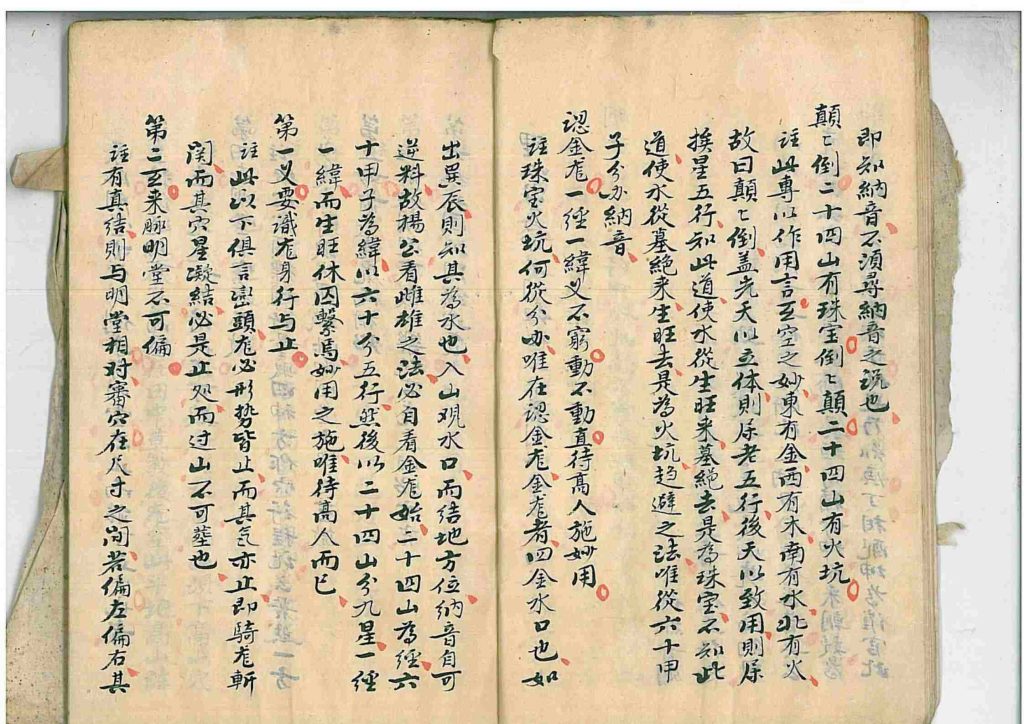 即知納音不須尋納音之説也
顛〻倒二十四山有珠宝倒〻顛二十四山有火坑
註此專以作用言五空之妙東有金西有木南有水北有火
故曰顛〻倒盖先天以立体則屬老五行後天以致用則屬
挨星五行知此道使水從生旺来墓絕去是為珠宝不知此
道使水從墓絕来生旺去是為火坑趋避之法唯從六十甲
子分办納音
認金龙一經一緯义不窮動不動直待高人施妙用
註珠宝火坑何從分办唯在認金龙金龙者四金水口也如
出巽辰則知其為水也入山观水口而结地方位納音自可
逆料故楊公看雌雄之法必自看金龙始二十四山為經六
十甲子為緯以六十分五行然後以二十四山分九星一經
一緯而生旺休囚繫焉妙用之施唯待高人而已
第一义要識龙身行与止
註此以下俱言巒頭龙必形势皆止而其气亦止即騎龙斬
関而其穴星凝結必是止处而过山不可塟也
第二言来脉明堂不可偏
註有真结則与明堂相对審穴在尺寸之间若偏左偏右其